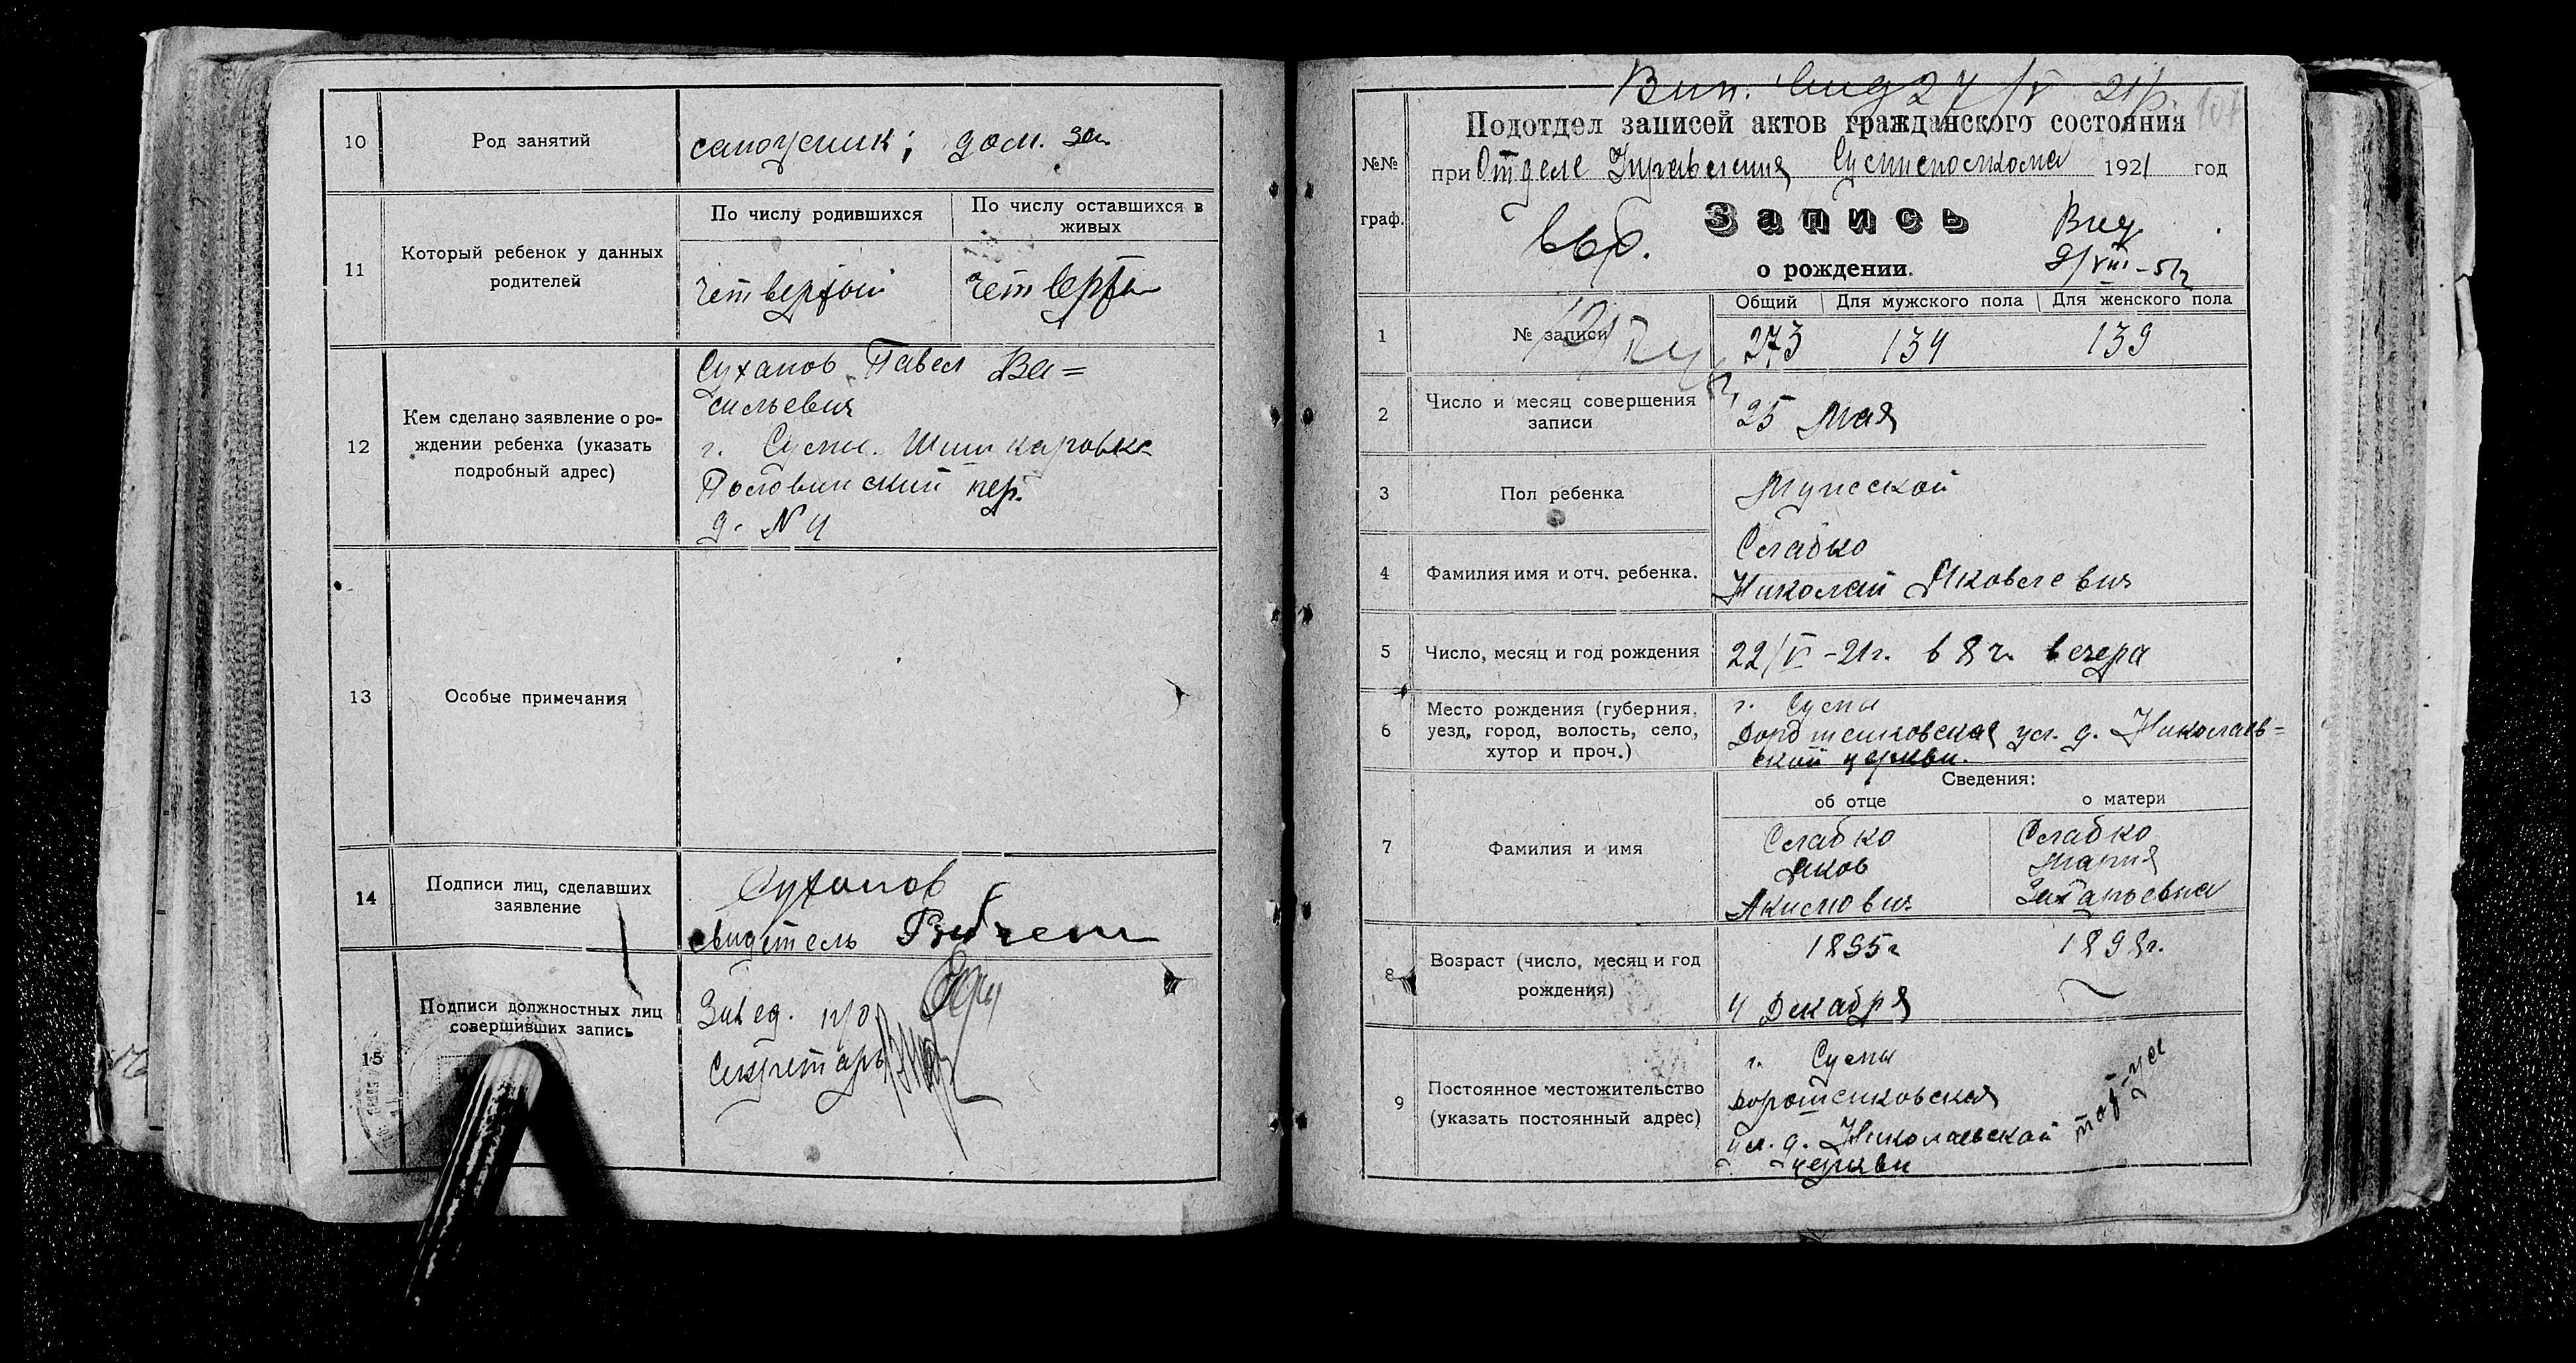 10
Род занятий
сапожник; дом. за
11
Который ребенок у данных
родителей
По числу родившихся
По числу оставшихся в
живых
четвертый
четверты
12
Кем сделано заявление о ро-
ждении ребенка (указать
подробный адрес)
Суханов Павел Ва=
сильевич
г. Сумы.
пер.
д. № 4
13
Особые примечания
14
Подписи лиц, сделавших
заявление
Суханов
свидетель
15
Подписи должностных лиц
совершивших запись
Завед. п/о
Секретарь
№№
граф.
Подотдел записей актов гражданского состояния
при Отделе Управления Сумисполкома 1921 год
Запись
о рождении.
выд.
9/VIII-51
1
№ записи
Общий
Для мужского пола
Для женского пола
273
134
139
2
Число и месяц совершения
записи
25 Мая
3
Пол ребенка
Мужской
4
Фамилия имя и отч. ребенка.
Слабко
Николай Яковлевич
5
Число, месяц и год рождения
22/V-21г. в 8 ч. вечера
6
Место рождения (губерния,
уезд, город, волость, село,
хутор и проч.)
г. Сумы
ул. д. Николаев=
ской церкви.
7
Фамилия и имя
Сведения:
об отце
о матери
Слабко
Яков
Слабко
Мария
Захарьевна
8
Возраст (число, месяц и год
рождения)
1895г
4 Декабря
1898г.
9
Постоянное местожительство
(указать постоянный адрес)
г. Сумы
Воротенковская
ул. д. Николаевской
церкви